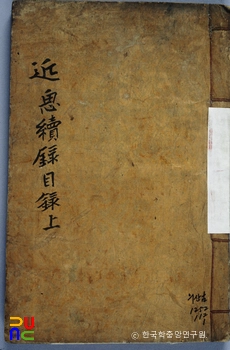 近思續錄目錄上
ⓒ 한국학중앙연구원